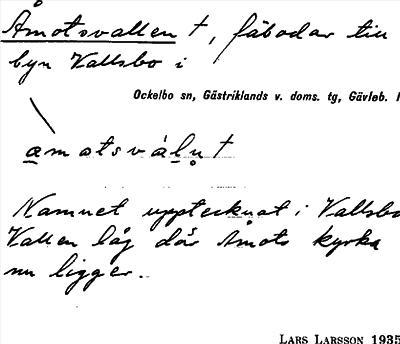 Åmotsvallen †, fäbodar till
byn Vallsbo i
Ockelbo sn, Gästriklands v. doms. tg, Gävleb. l
amotsválu̥ †
Namnet upptecknat i Vallsbo
Vallen låg där Åmots kyrka
nu ligger.
LARS LARSSON 1935